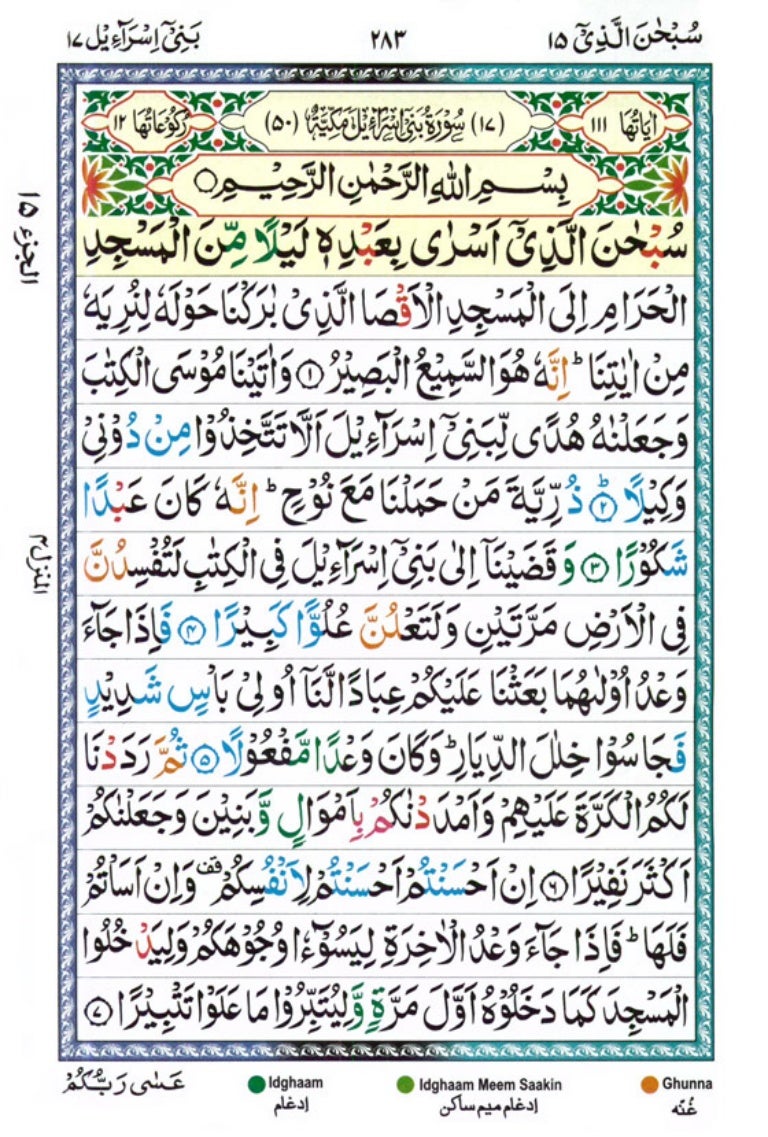 سُبْحٰنَ الَّذِیْۤ ۱۵
۲۸۳
بَنِیْۤ اِسْرَآءِیْل ۱۷
اٰیَاتُهَا ۱۱۱
(۱۷) سُوْرَةُ بَنِیْۤ اِسْرَآءِیْلَ مَكِّیَّةٌ (۵۰)
رُكُوْعَاتُهَا ۱۲
بِسْمِ اللّٰهِ الرَّحْمٰنِ الرَّحِیْمِ
سُبْحٰنَ الَّذِیْۤ اَسْرٰی بِعَبْدِهٖ لَیْلًا مِّنَ الْمَسْجِدِ
الْحَرَامِ اِلَی الْمَسْجِدِ الْاَقْصَا الَّذِیْ بٰرَكْنَا حَوْلَهٗ لِنُرِیَهٗ
مِنْ اٰیٰتِنَا ؕ اِنَّهٗ هُوَ السَّمِیْعُ الْبَصِیْرُ ۝۱ وَاٰتَیْنَا مُوْسَی الْكِتٰبَ
وَجَعَلْنٰهُ هُدًی لِّبَنِیْۤ اِسْرَآءِیْلَ اَلَّا تَتَّخِذُوْا مِنْ دُوْنِیْ
وَكِیْلًا ۝۲ؕ ذُرِّیَّةَ مَنْ حَمَلْنَا مَعَ نُوْحٍ ؕ اِنَّهٗ كَانَ عَبْدًا
شَكُوْرًا ۝۳ وَ قَضَیْنَاۤ اِلٰی بَنِیْۤ اِسْرَآءِیْلَ فِی الْكِتٰبِ لَتُفْسِدُنَّ
فِی الْاَرْضِ مَرَّتَیْنِ وَلَتَعْلُنَّ عُلُوًّا كَبِیْرًا ۝۴ فَاِذَا جَآءَ
وَعْدُ اُوْلٰىهُمَا بَعَثْنَا عَلَیْكُمْ عِبَادًا لَّنَاۤ اُولِیْ بَاْسٍ شَدِیْدٍ
فَجَاسُوْا خِلٰلَ الدِّیَارِ ؕ وَكَانَ وَعْدًا مَّفْعُوْلًا ۝۵ ثُمَّ رَدَدْنَا
لَكُمُ الْكَرَّةَ عَلَیْهِمْ وَاَمْدَدْنٰكُمْ بِاَمْوَالٍ وَّبَنِیْنَ وَجَعَلْنٰكُمْ
اَكْثَرَ نَفِیْرًا ۝۶ اِنْ اَحْسَنْتُمْ اَحْسَنْتُمْ لِاَنْفُسِكُمْ قف وَاِنْ اَسَاْتُمْ
فَلَهَا ؕ فَاِذَا جَآءَ وَعْدُ الْاٰخِرَةِ لِیَسُوْٓءٗا وُجُوْهَكُمْ وَلِیَدْخُلُوا
الْمَسْجِدَ كَمَا دَخَلُوْهُ اَوَّلَ مَرَّةٍ وَّلِیُتَبِّرُوْا مَا عَلَوْا تَتْبِیْرًا ۝۷
الجزء ۱۵
المنزل ۴
عَسٰی رَبُّكُمْ
Idghaam
ادغام
Idghaam Meem Saakin
ادغام میم ساکن
Ghunna
غُنّه